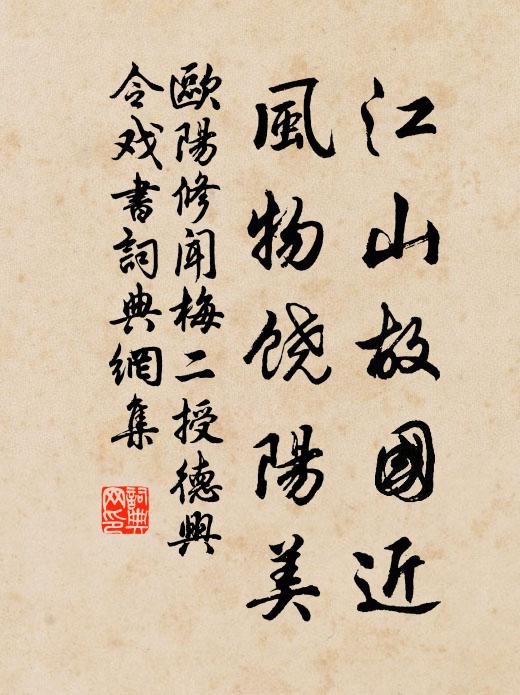 江山故國近
風物饶陽美
歐陽修闻梅二授德興
令戏書詞典網集
詞典网印